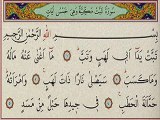 سورة تبت مكية وهي خمس آيات
بِسْمِ اللَّهِ الرَّحْمَٰنِ الرَّحِيمِ
تَبَّتْ يَدَا أَبِي لَهَبٍ وَتَبَّ مَا أَغْنَىٰ عَنْهُ مَالُهُ
وَمَا كَسَبَ سَيَصْلَىٰ نَارًا ذَاتَ لَهَبٍ وَامْرَأَتُهُ
حَمَّالَةَ الْحَطَبِ فِي جِيدِهَا حَبْلٌ مِنْ مَسَدٍ